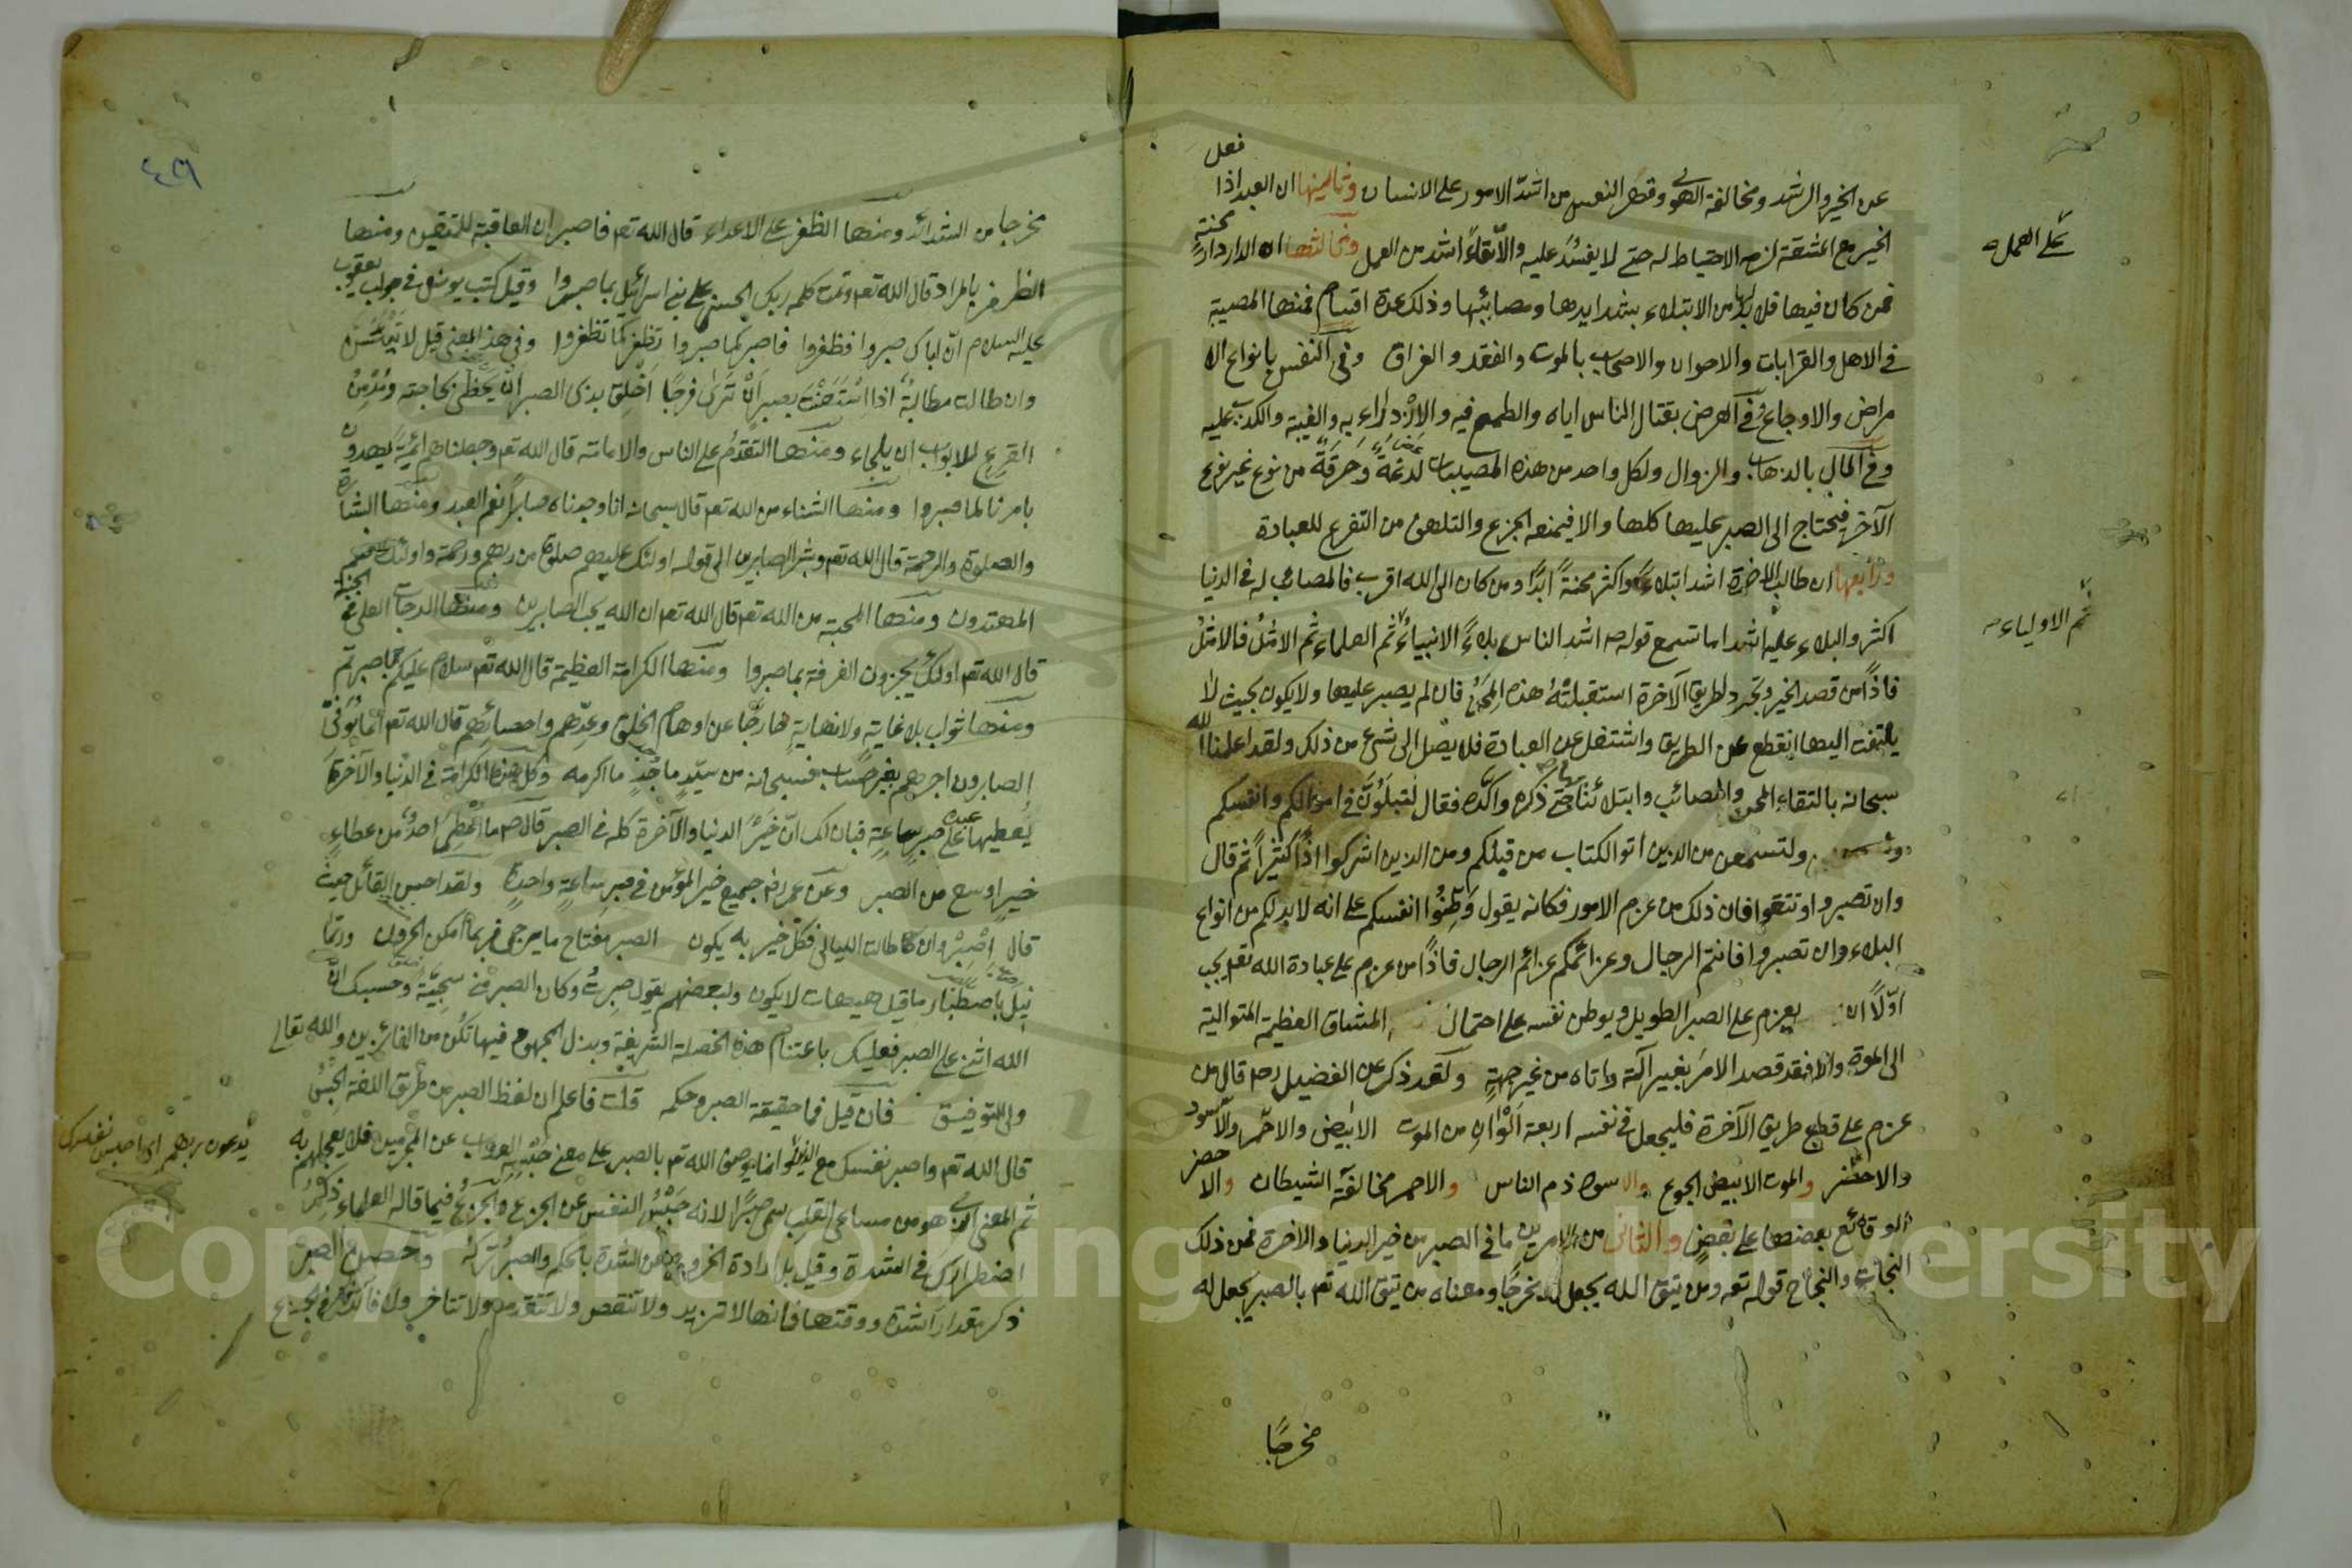 فعل
عن الخير والرشد ومخالفة الهوى وقطع النفس من اشدّ الامور على الانسان وثانيها ان العبد اذا
الخير مع المشقة لزمه الاحتياط له حتى لا يفسد عليه والاتقاء اشد من العمل وثالثها ان الدار دار محنة
على العمل
فمن كان فيها فلا بد له من الابتلاء بشدايدها ومصائبها وذلك عدة اقسام فمنها المصيبة
في الاهل والقرابات والاخوان والاصحاب بالموت والفقد والفراق وفي النفس بانواع الا
مراض والاوجاع وفي العرض بقتال الناس اياه والطمع فيه والازدراء به والغيبة والكذب عليه
وفي المال بالذهاب والزوال ولكل واحد من هذه المصيبات لدغة وحرقة من نوع غير نوع
الآخر فيحتاج الى الصبر عليها كلها والا فيمنعه الجزع والتلهف من التفرغ للعبادة
ورابعها ان طالب الاخرة اشد ابتلاءً واكثر محنةً ابدًا ومن كان الى الله اقرب فالمصائب له في الدنيا
اكثر والبلاء عليه اشد اما تسمع قوله صه اشد الناس بلاءً الانبياء ثم العلماء ثم الامثل فالامثل
ثم الاولياء صه
فاذًا من قصد الخير وتجرد لطريق الآخرة استقبلته هذه المحن فان لم يصبر عليها ولا يكون بحيث لا
يلتفت اليها انقطع عن الطريق واشتغل عن العبادة فلا يصل الى شيء من ذلك ولقد اعلمنا الله
سبحانه بالتقاء المحن والمصائب وابتلائنا بها حتى ذكره واكّده فقال لتبلونّ في اموالكم وانفسكم
ولتسمعن من الذين اتو الكتاب من قبلكم ومن الذين اشركوا اذًا كثيرًا ثم قال
وان تصبروا وتتقوا فان ذلك من عزم الامور فكانه يقول وطّنوا انفسكم على انه لا بد لكم من انواع
البلاء وان تصبروا فانتم الرجال وعزائمكم عزائم الرجال فاذًا من عزم على عبادة الله تعه يجب
اوّلاً ان يعزم على الصبر الطويل ويوطن نفسه على احتمال المشاق العظيمة المتوالية
الى الموت والا فقد قصد الامر بغير آلته واتاه من غير جهته ولقد ذكر عن الفضيل رحه قال من
عزم على قطع طريق الآخرة فليجعل في نفسه اربعة الوان من الموت الابيض والاحمر والاسود
والاخضر والموت الابيض الجوع والاسود ذم الناس والاحمر مخالفة الشيطان والاخضر
الوقائع بعضها على بعض والثاني من الامرين ما في الصبر من خير الدنيا والاخرة فمن ذلك
النجاة والنجاح قوله تعه ومن يتق الله يجعل له مخرجًا ومعناه من يتق الله تعه بالصبر يجعل له
مخرجًا
٤٩
مخرجا من الشدائد ومنها الظفر على الاعداء قال الله تعه فاصبر ان العاقبة للمتقين ومنها
الظفر بالمراد قال الله تعه وتمت كلمة ربك الحسنى على بني اسرائيل بما صبروا وقيل كتب يوسف في جواب يعقوب
عليه السلام انّ اباك صبروا فظفروا فاصبر كما صبروا تظفر كما ظفروا وفي هذا المعنى قيل لا تيئسنّ
وان طالت مطالبةٌ اذا استعنت بصبر ان ترى فرجًا اخلق بذى الصبر ان يحظى بحاجته ومدمن
القرع للابواب ان يلجاء ومنها التقدم على الناس والامامة قال الله تعه وجعلناهم ائمة يهدون
بامرنا لما صبروا ومنها الثناء من الله تعه قال سبحانه انا وجدناه صابرًا نعم العبد ومنها البشارة
والصلوة والرحمة قال الله تعه وبشر الصابرين الى قوله اولئك عليهم صلوات من ربهم ورحمة واولئك هم
المهتدون ومنها المحبة من الله تعه قال الله تعه ان الله يحب الصابرين ومنها الدرجات العلى في الجنة
قال الله تعه اولئك يجزون الغرفة بما صبروا ومنها الكرامة العظيمة قال الله تعه سلام عليكم بما صبرتم
ومنها ثواب بلا غاية ولا نهاية خارجًا عن اوهام الخلق وعدّهم واحصائهم قال الله تعه انما يوفّى
الصابرون اجرهم بغير حساب فسبحانه من سيّد ماجدٍ ما اكرمه وكل هذه الكرامة في الدنيا والآخرة
يعطيها عبده على صبر ساعةٍ فبان لك انّ خير الدنيا والآخرة كله في الصبر قال صه ما اعطى احدٌ من عطاءٍ
خيرٍ اوسع من الصبر وعن عمر رضه جميع خير المؤمن في صبر ساعةٍ واحدةٍ ولقد احسن القائل حيث
قال الصبر مفتاح ما يرجى فربما امكن الحرون
اصبر وان طالت الليالي فكل خير به يكون وربّما
نيل باصطبار ما قيل هيهات لا يكون ولبعضهم يقول صبرت وكان الصبر مني سجيّةً وحسبك انّ
الله اثنى على الصبر فعليك باغتنام هذه الخصلة الشريفة وبذل المجهود فيها تكن من الفائزين والله تعالى
ولي التوفيق فان قيل فما حقيقة الصبر وحكمه قلت فاعلم ان لفظ الصبر من طريق اللغة الحبس
قال الله تعه واصبر نفسك مع الذين وانما يوصف الله تعه بالصبر على معنى حبسه العذاب عن المجرمين فلا يعجلهم به
يدعون ربهم اى احبس نفسك
ثم المعنى الذي هو من مساعى القلب سمى صبرًا لانه حبس النفس عن الجزع والجزع فيما قاله العلماء ذكر
اضطرارك في الشدة وقيل بل ارادة الخروج عن الشدة بالحكم والصبر تركه وحصن الصبر
ذكر مقدار الشدة ووقتها فانها لا تزيد ولا تنقص ولا تتقدم ولا تتاخر ولا فائدة في الجزع